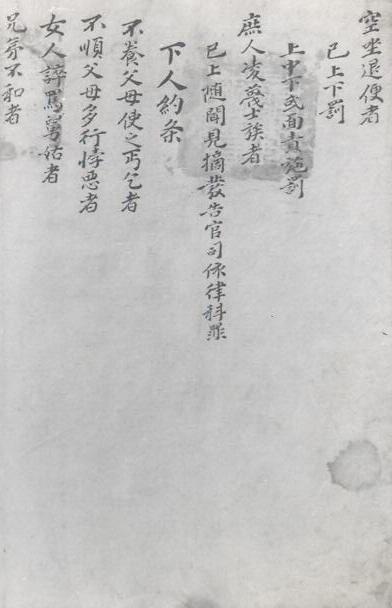 空坐退便者
已上下罰
上中下或面責施罰
庶人凌蔑士族者
已上隨聞見摘發告官司依律科罪
下人約条
不養父母使之丐乞者
不順父母多行悖悪者
女人誶罵舅姑者
兄㐧不和者